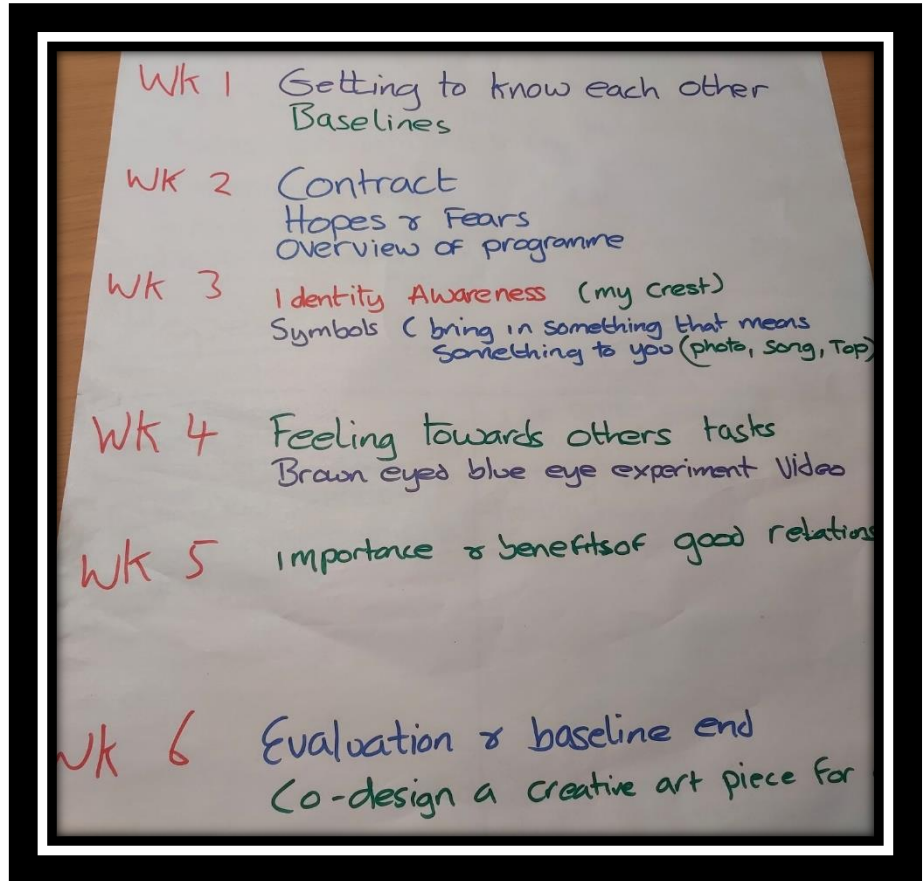 Wk 1 Getting to know each other
Baselines
Wk 2 Contract
Hopes & Fears
Overview of programme
Wk 3 Identity Awareness (my crest)
Symbols ( bring in something that means
something to you (photo, song, Top)
Wk 4 Feeling towards others tasks
Brown eyed blue eye experiment Video
Wk 5 Importance & benefits of good relations
Wk 6 Evaluation & baseline end
Co-design a creative art piece for